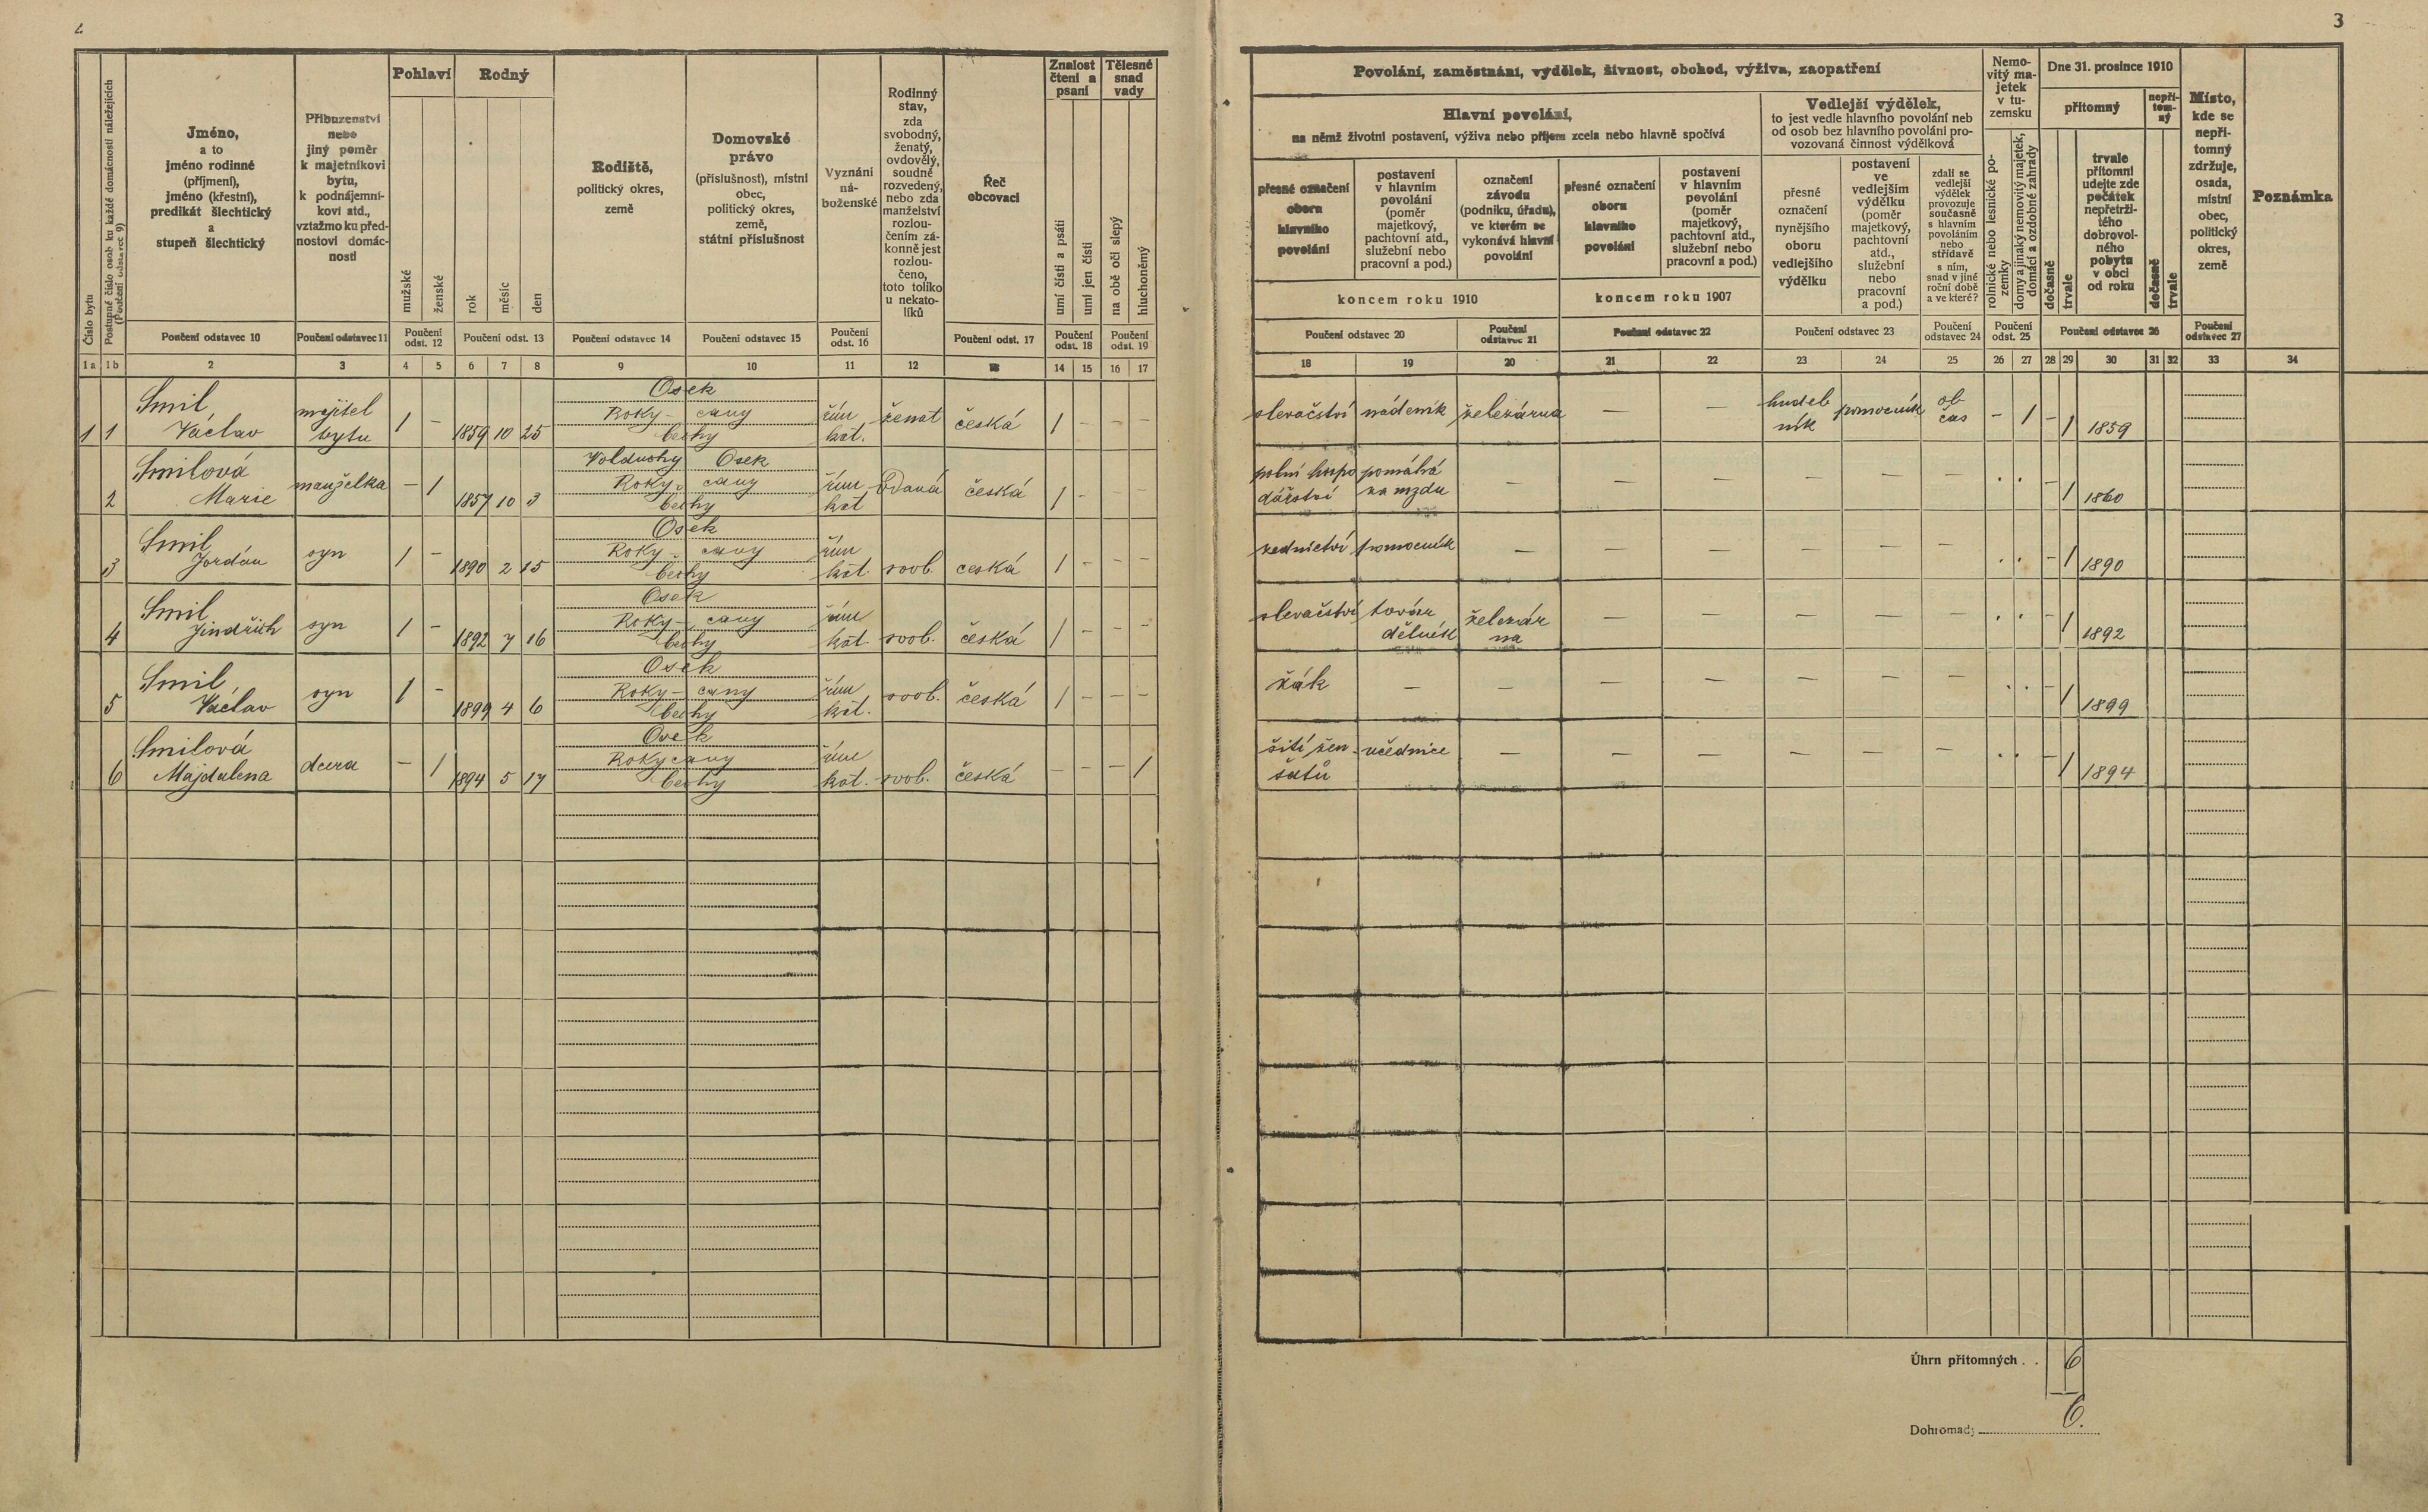 2
Číslo bytu
Postupné číslo osob ku každé domácnosti náležejících
(Poučení odstavec 9)
Jméno,
a to
jméno rodinné
(příjmení),
jméno (křestní),
predikát šlechtický
a
stupeň šlechtický
Příbuzenství
nebo
jiný poměr
k majetníkovi
bytu,
k podnájemní-
kovi atd.,
vztažmo ku před-
nostovi domác-
nosti
Pohlaví
mužské
ženské
Rodný
rok
měsíc
den
Rodiště,
politický okres,
země
Domovské
právo
(příslušnost), místní
obec,
politický okres,
země,
státní příslušnost
Vyznání
ná-
boženské
Rodinný
stav,
zda
svobodný,
ženatý,
ovdovělý,
soudně
rozvedený,
nebo zda
manželství
rozlou-
čením zá-
konně jest
rozlou-
čeno,
toto toliko
u nekato-
líků
Řeč
obcovací
Znalost
čtení a
psaní
umí čísti a psáti
umí jen čísti
Tělesné
snad
vady
na obě oči slepý
hluchoněmý
Poučení odstavec 10
Poučení odstavec 11
Poučení
odst. 12
Poučení odst. 13
Poučení odstavec 14
Poučení odstavec 15
Poučení
odst. 16
Poučení odst. 17
Poučení
odst. 18
Poučení
odst. 19
1a 1b 2 3 4 5 6 7 8 9 10 11 12 13 14 15 16 17
Osek
Smil majitel Roky- cany řím ženat
1 1 Václav bytu 1 - 1859 10 25 Čechy kat. česká 1 - - -
Volduchy Osek
Smilová manželka Roky- cany řím vdaná
2 Marie - 1 1857 10 3 Čechy kat česká 1 - - -
Osek
Smil syn Roky- cany řím
3 Jordán 1 - 1890 2 15 Čechy kat. svob. česká 1 - - -
Osek
Smil syn Roky- cany řím
4 Jindřich 1 - 1892 7 16 Čechy kat. svob. česká 1 - - -
Osek
Smil syn Roky- cany řím
5 Václav 1 - 1899 4 6 Čechy kat. svob. česká 1 - - -
Osek
Smilová dcera Rokycany řím
6 Majdalena - 1 1894 5 17 Čechy kat. svob. česká - - - 1
3
Povolání, zaměstnání, výdělek, živnost, obchod, výživa, zaopatření
Hlavní povolání,
na němž životní postavení, výživa nebo příjem zcela nebo hlavně spočívá
přesné označení
oboru
hlavního
povolání
postavení
v hlavním
povolání
(poměr
majetkový,
pachtovní atd.,
služební nebo
pracovní a pod.)
označení
závodu
(podniku, úřadu),
ve kterém se
vykonává hlavní
povolání
koncem roku 1910
přesné označení
oboru
hlavního
povolání
postavení
v hlavním
povolání
(poměr
majetkový,
pachtovní atd.,
služební nebo
pracovní a pod.)
koncem roku 1907
Vedlejší výdělek,
to jest vedle hlavního povolání neb
od osob bez hlavního povolání pro-
vozovaná činnost výdělková
přesné
označení
nynějšího
oboru
vedlejšího
výdělku
postavení
ve
vedlejším
výdělku
(poměr
majetkový,
pachtovní
atd.,
služební
nebo
pracovní
a pod.)
zdali se
vedlejší
výdělek
provozuje
současně
s hlavním
povoláním
nebo
střídavě
s ním,
snad v jiné
roční době
a ve které?
Nemo-
vitý ma-
jetek
v tu-
zemsku
rolnické nebo lesnické po-
zemky
domy a jinaký nemovitý majetek,
domácí a ozdobné zahrady
Dne 31. prosince 1910
přítomný
dočasně
trvale
trvale
přítomní
udejte zde
počátek
nepřetrži-
tého
dobrovol-
ného
pobytu
v obci
od roku
nepří-
tom-
ný
dočasně
trvale
Místo,
kde se
nepří-
tomný
zdržuje,
osada,
místní
obec,
politický
okres,
země
Poznámka
Poučení odstavec 20
Poučení
odstavec 21
Poučení odstavec 22
Poučení odstavec 23
Poučení
odstavec 24
Poučení
odst. 25
Poučení odstavec 26
Poučení
odstavec 27
18 19 20 21 22 23 24 25 26 27 28 29 30 31 32 33 34
slevačství nádeník železárna — — hudeb pomocník ob
ník čas - 1 - 1 1859
polní hospo pomáhá — — — — —
dářství za mzdu - 1 1860
zednictví pomocník — — — — — —
- 1 1890
slevačství továr železár — — — — —
dělník na - 1 1892
žák — — — — — — —
- 1 1899
šití žen učednice — — — — — —
šatů - 1 1894
Úhrn přítomných . . 6
Dohromady 6.